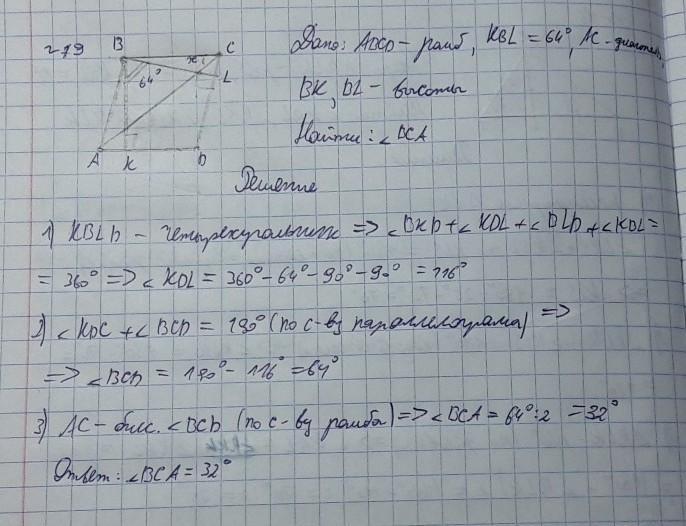 B
C
64°
L
A
K
D
Дано: ABCD - ромб, KBL = 64°, AC -
BK, BL - высоты
Найти: ∠BCA
Решение
1) KBLD - четырехугольник => ∠BKD + ∠KBL + ∠BLD + ∠KDL =
= 360° => ∠KDL = 360° - 64° - 90° - 90° = 116°
2) ∠KDC + ∠BCD = 180° (по с-ву параллелограма) =>
=> ∠BCD = 180° - 116° = 64°
3) AC - бисс. ∠BCD (по с-ву ромба) => ∠BCA = 64° : 2 = 32°
Ответ: ∠BCA = 32°